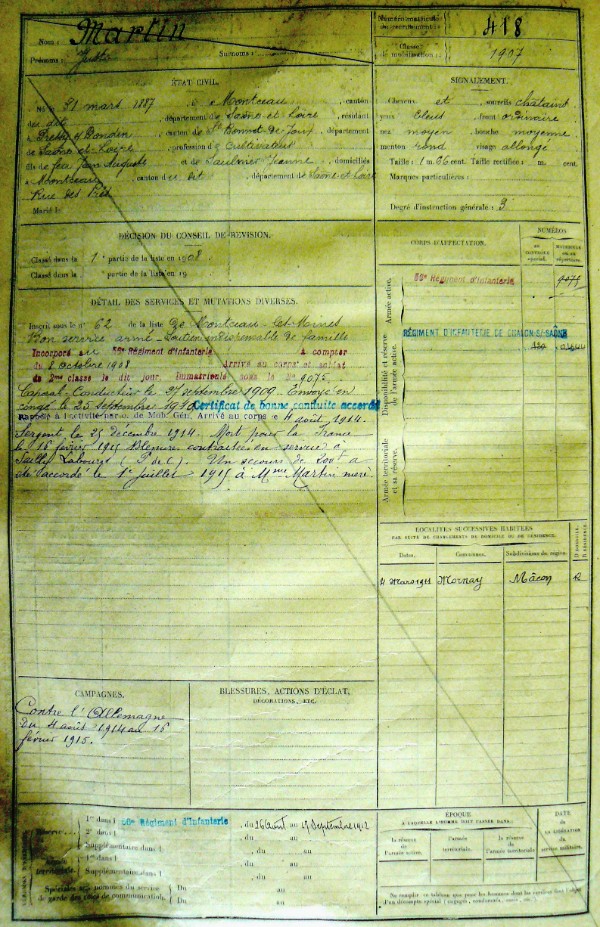 Nom : Martin
Prénoms : Juste Surnoms :
Numéro matricule du recrutement : 418
Classe de mobilisation : 1907
ÉTAT CIVIL.
Né le 21 mars 1887, à Montceau, canton
du dit, département de Saône-et-Loire, résidant
à Pressy s/ Dondin, canton de St Bonnet de Joux, département
de Saône-et-Loire, profession de Cultivateur
fils de feu Jean Auguste et de Saulnier Jeanne, domiciliés
à Montceau, canton du dit, département de Saône-et-Loire
Rue des Prés
Marié le
SIGNALEMENT.
Cheveux et sourcils châtains
yeux bleus front ordinaire
nez moyen bouche moyenne
menton rond visage allongé
Taille : 1 m. 66 cent. Taille rectifiée : m. cent.
Marques particulières :
Degré d'instruction générale : 3
DÉCISION DU CONSEIL DE REVISION.
Classé dans la 1e partie de la liste en 1908
Classé dans la partie de la liste en 19
DÉTAIL DES SERVICES ET MUTATIONS DIVERSES.
Inscrit sous le n° 62 de la liste de Montceau-les-Mines
Bon service armé - Soutien indispensable de famille
Incorporé au 56e Régiment d'Infanterie A compter
du 8 octobre 1908 Arrivé au corps et soldat
de 2me classe le dit jour. Immatriculé sous le n° 9075
Caporal-Conducteur le 27 septembre 1909. Envoyé en
congé le 25 septembre 1910 Certificat de bonne conduite accordé
Rappelé à l'activité Arrivé au corps le 4 août 1914.
Sergent le 25 décembre 1914. Mort pour la France
le 16 février 1915 Blessures contractées en service à
Sailly Labourse (P. de C.). Un secours de 200f a
été accordé le 1er juillet 1915 à Mme Martin mère
CORPS D'AFFECTATION.
NUMÉROS
au contrôle spécial.
matricule ou au répertoire.
Armée active.
56e Régiment d'Infanterie
9075
Disponibilité et réserve de l'armée active.
RÉGIMENT D'INFANTERIE DE CHALON-S/-SAÔNE
Armée territoriale et sa réserve.
LOCALITÉS SUCCESSIVES HABITÉES
PAR SUITE DE CHANGEMENTS DE DOMICILE OU DE RÉSIDENCE.
Dates. Communes. Subdivisions de région. D domicile. R résidence.
Mornay Mâcon R
CAMPAGNES.
Contre l'Allemagne
du 4 août 1914 au 16
février 1915.
BLESSURES, ACTIONS D'ÉCLAT,
DÉCORATIONS, ETC.
Réserve
1er dans l 56e Régiment d'Infanterie, du 26 août au 17 Septembre 1912
2e dans l , du au
Supplémentaire dans l , du au
Armée territoriale
1er dans l , du au
Supplémentaire dans l , du au
Spéciales aux hommes du service de garde des voies de communication. Du au
Du au
ÉPOQUE
À LAQUELLE L'HOMME DOIT PASSER DANS :
la réserve de l'armée active.
l'armée territoriale.
la réserve de l'armée territoriale.
DATE de la LIBÉRATION du service militaire.